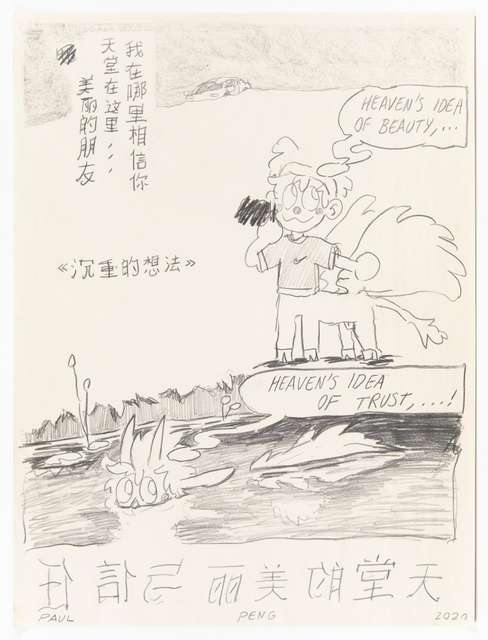 我在哪里相信你
天堂在这里,,,
美丽的朋友
HEAVEN'S IDEA
OF BEAUTY,...
《沉重的想法》
HEAVEN'S IDEA
OF TRUST,...!
天堂的美丽与信任
PAUL PENG 2020